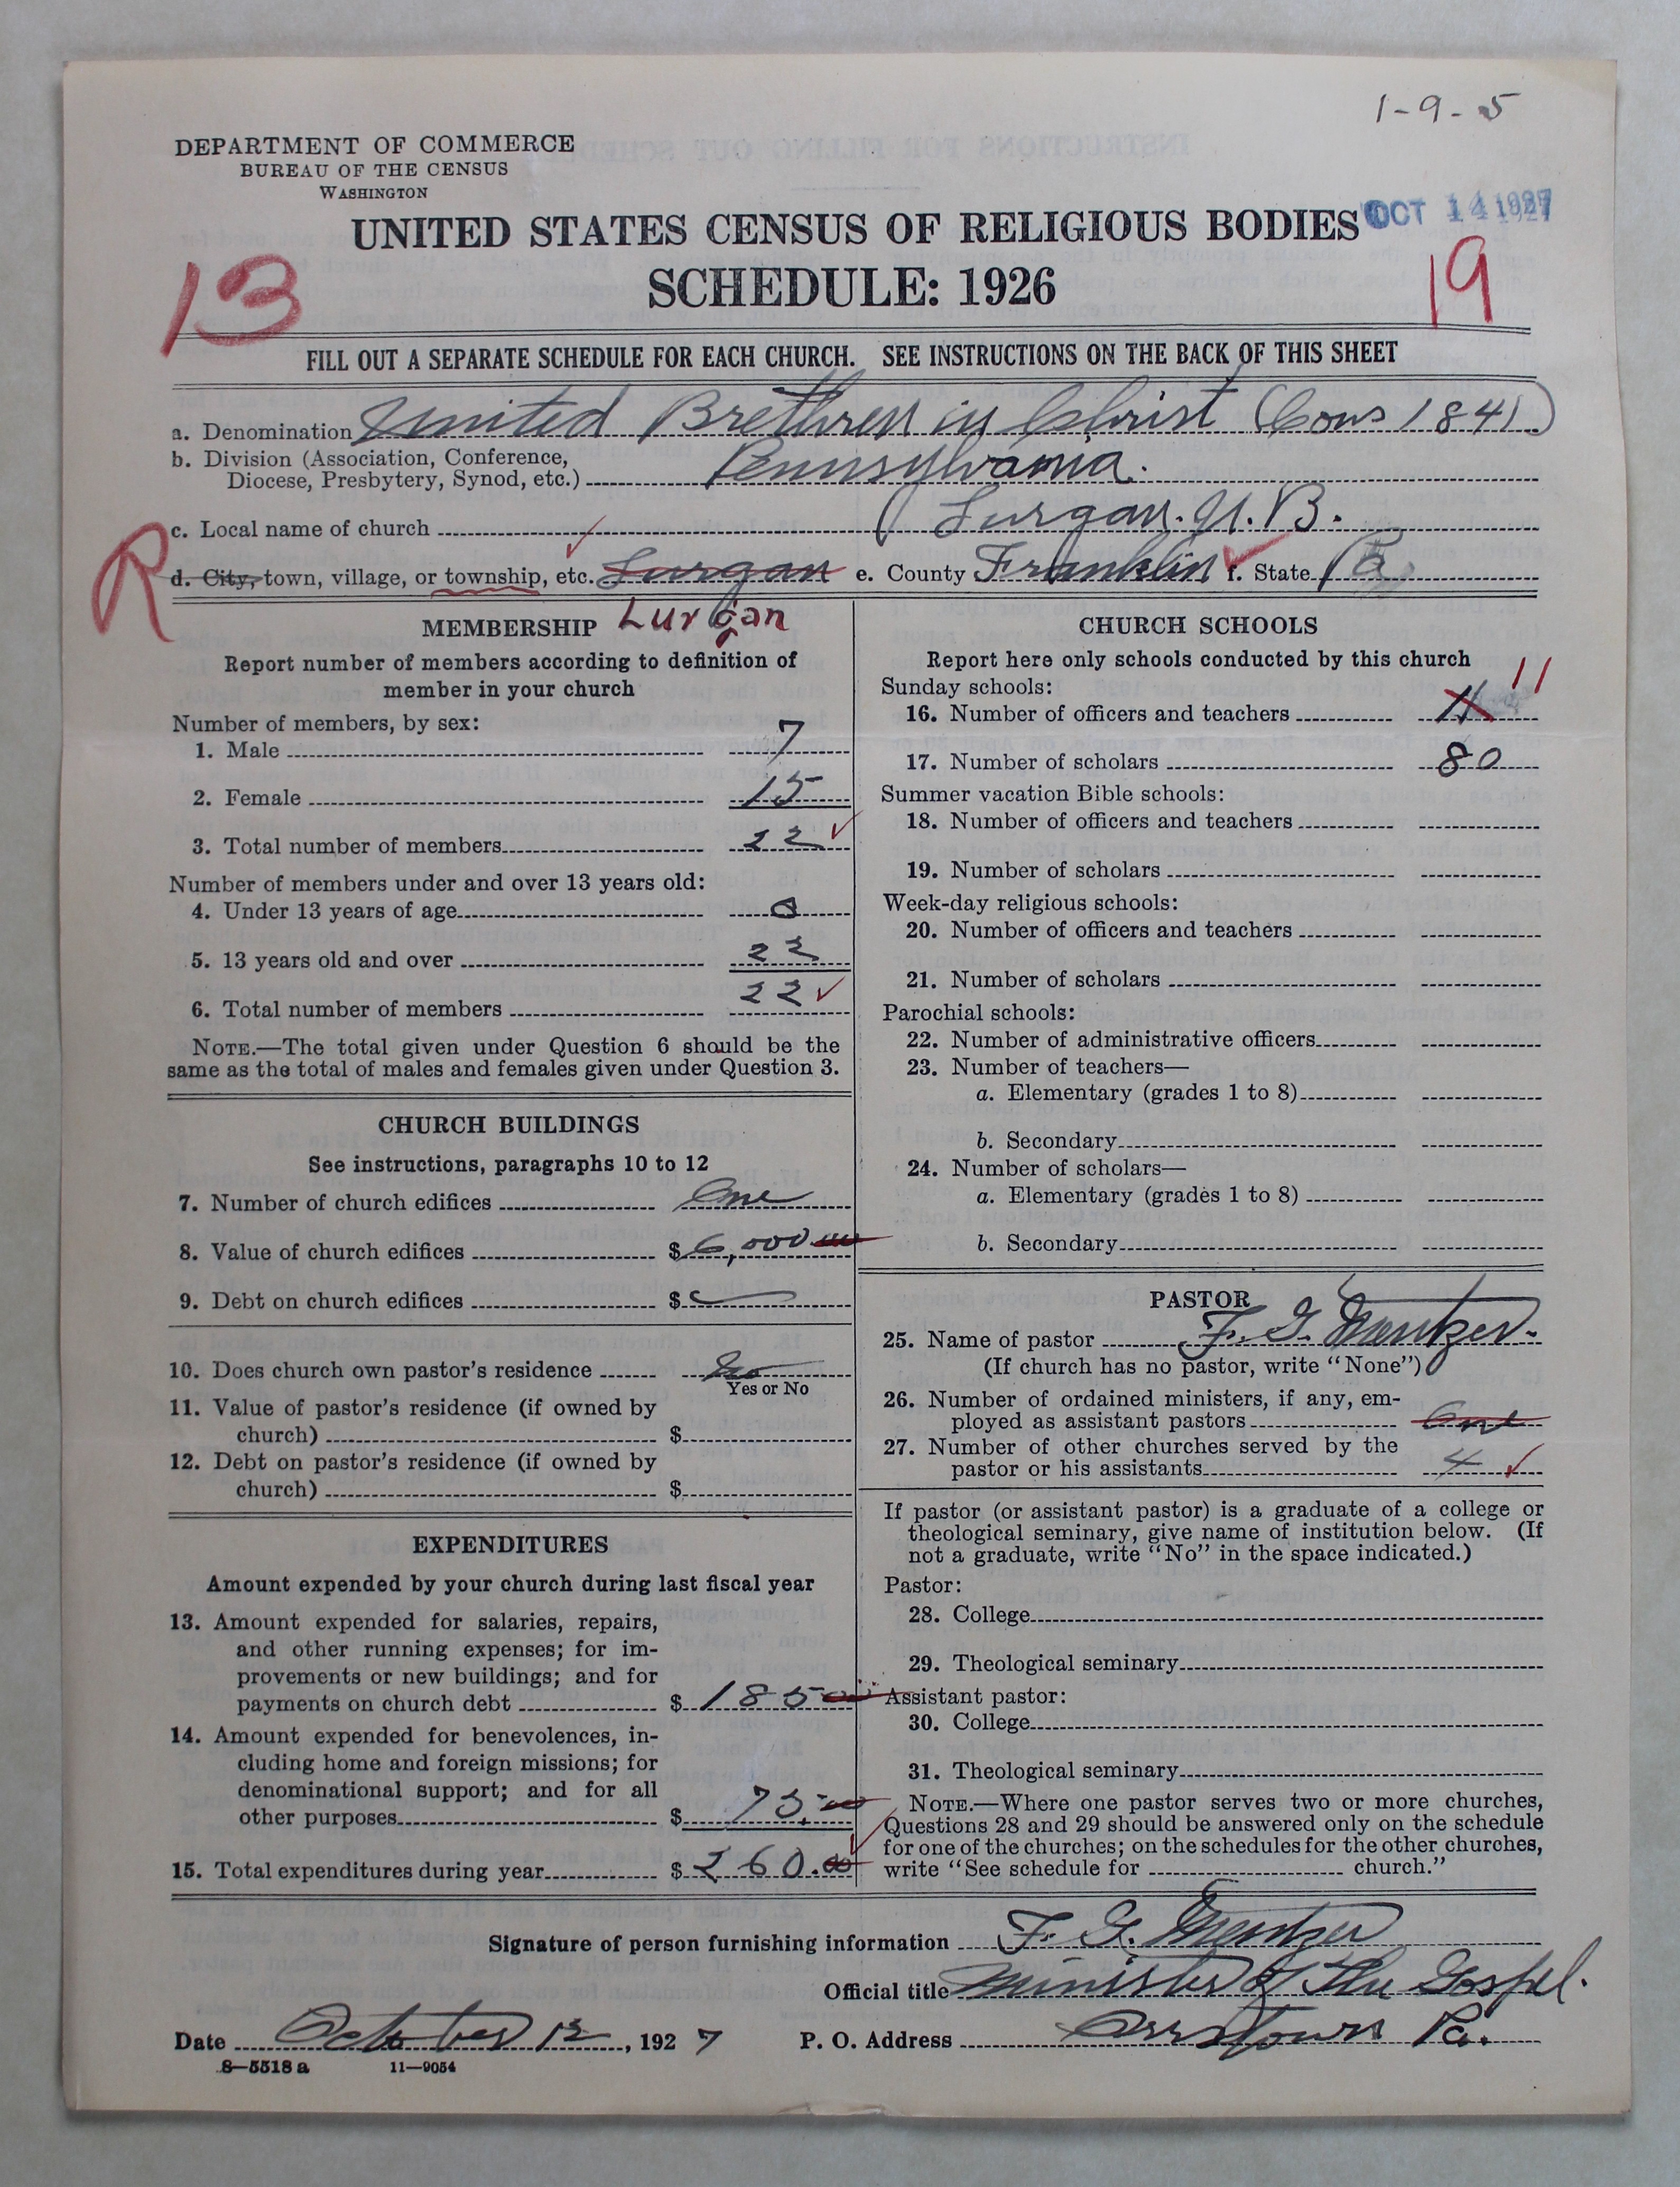 1-9-5
DEPARTMENT OF COMMERCE
BUREAU OF THE CENSUS
WASHINGTON
UNITED STATES CENSUS OF RELIGIOUS BODIES
OCT 14 1927
SCHEDULE: 1926
13
19
FILL OUT A SEPARATE SCHEDULE FOR EACH CHURCH. SEE INSTRUCTIONS ON THE BACK OF THIS SHEET
a. Denomination United Brethren in Christ (Cons 1841)
b. Division (Association, Conference,
Diocese, Presbytery, Synod, etc.) Pennsylvania.
c. Local name of church (Lurgan. U. B.
R
d. City, town, village, or township, etc. Lurgan e. County Franklin f. State Pa
Lurgan
MEMBERSHIP
Report number of members according to definition of
member in your church
Number of members, by sex:
1. Male 7
2. Female 15
3. Total number of members 22
Number of members under and over 13 years old:
4. Under 13 years of age 0
5. 13 years old and over 22
6. Total number of members 22
NOTE.—The total given under Question 6 should be the
same as the total of males and females given under Question 3.
CHURCH BUILDINGS
See instructions, paragraphs 10 to 12
7. Number of church edifices One
8. Value of church edifices $ 6,000 00
9. Debt on church edifices $
10. Does church own pastor's residence No
Yes or No
11. Value of pastor's residence (if owned by
church) $
12. Debt on pastor's residence (if owned by
church) $
EXPENDITURES
Amount expended by your church during last fiscal year
13. Amount expended for salaries, repairs,
and other running expenses; for im-
provements or new buildings; and for
payments on church debt $ 185 00
14. Amount expended for benevolences, in-
cluding home and foreign missions; for
denominational support; and for all
other purposes $ 75.00
15. Total expenditures during year $ 260.00
CHURCH SCHOOLS
Report here only schools conducted by this church
Sunday schools:
11
16. Number of officers and teachers 11
17. Number of scholars 80
Summer vacation Bible schools:
18. Number of officers and teachers
19. Number of scholars
Week-day religious schools:
20. Number of officers and teachers
21. Number of scholars
Parochial schools:
22. Number of administrative officers
23. Number of teachers—
a. Elementary (grades 1 to 8)
b. Secondary
24. Number of scholars—
a. Elementary (grades 1 to 8)
b. Secondary
PASTOR
25. Name of pastor F. G. Mentzer.
(If church has no pastor, write "None")
26. Number of ordained ministers, if any, em-
ployed as assistant pastors One
27. Number of other churches served by the
pastor or his assistants 4
If pastor (or assistant pastor) is a graduate of a college or
theological seminary, give name of institution below. (If
not a graduate, write "No" in the space indicated.)
Pastor:
28. College
29. Theological seminary
Assistant pastor:
30. College
31. Theological seminary
NOTE.—Where one pastor serves two or more churches,
Questions 28 and 29 should be answered only on the schedule
for one of the churches; on the schedules for the other churches,
write "See schedule for church."
Signature of person furnishing information F. G. Mentzer
Official title Minister of the Gospel.
Date October 12, 1927 P. O. Address Orrstown Pa.
8—5518 a 11—9054